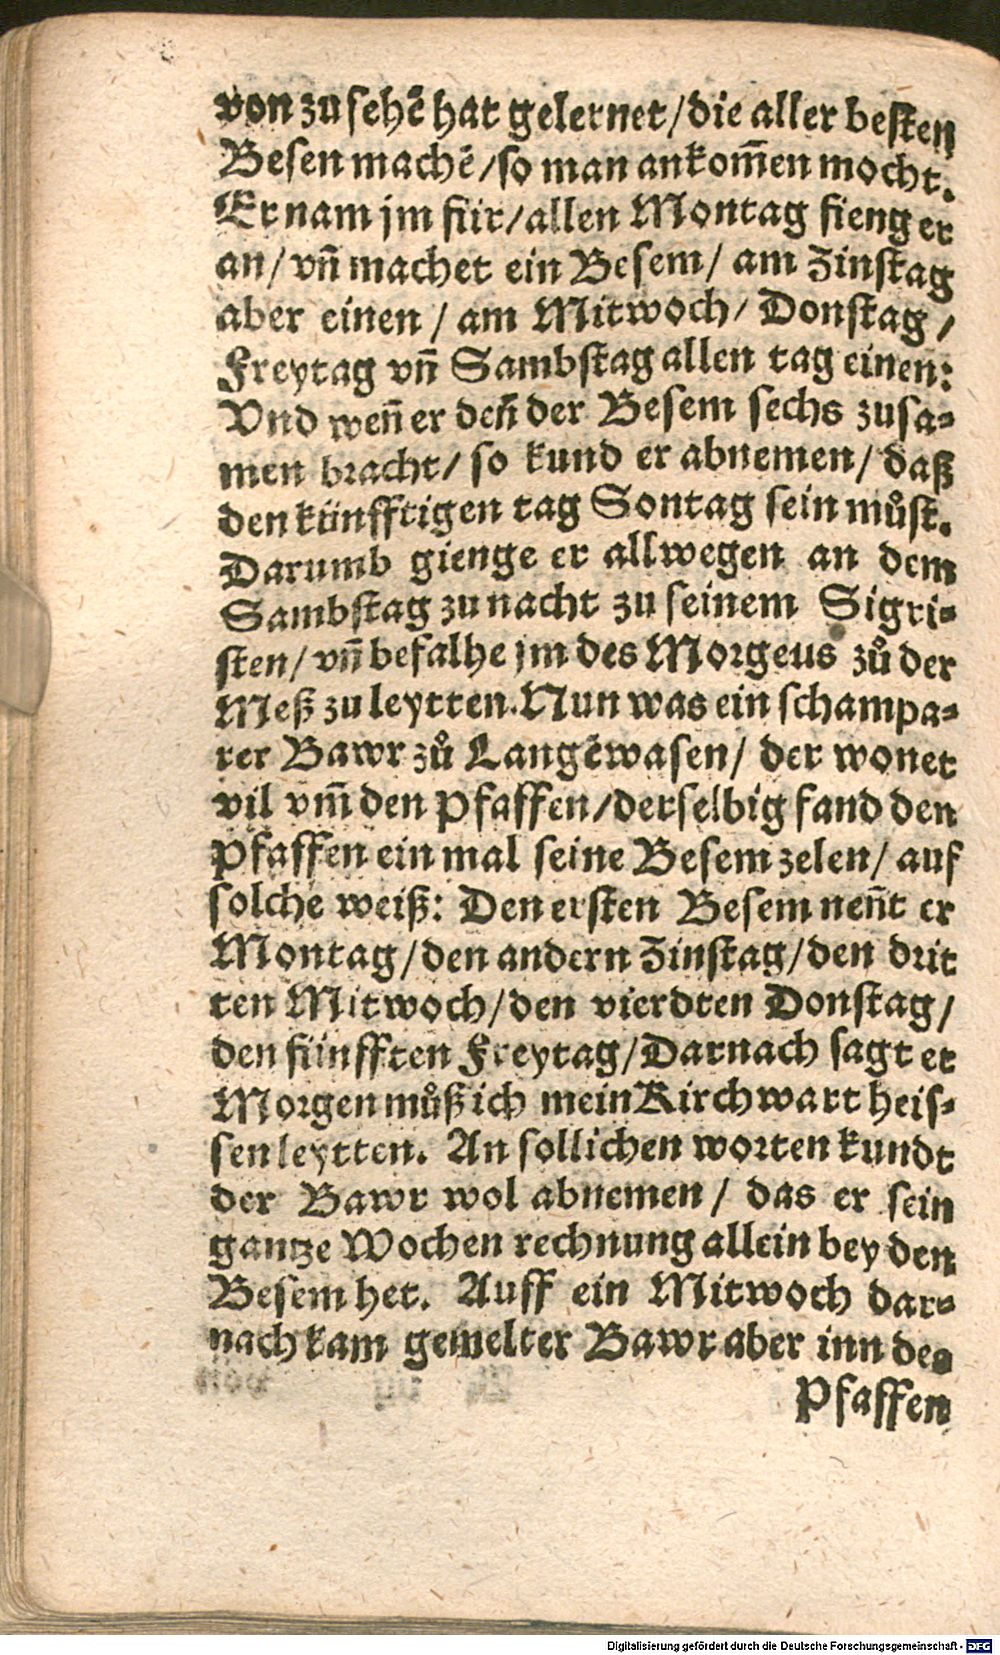 von zu sehẽ hat gelernet/die aller besten
Besen machẽ/so man ankom̃en mocht.
Er nam jm für/allen Montag fieng er
an/vñ machet ein Besem/ am Zinstag
aber einen / am Mitwoch/ Donstag/
Freytag vñ Sambstag allen tag einen:
Vnd weñ er deñ der Besem sechs zusa-
men bracht/ so kund er abnemen/ daß
den künfftigen tag Sontag sein můst.
Darumb gienge er allwegen an dem
Sambstag zu nacht zu seinem Sigri-
sten/ vñ befalhe jm des Morgeus zů der
Meß zu leytten. Nun was ein schampa-
rer Bawr zů Langẽwasen/ der wonet
vil vm̃ den Pfaffen/derselbig fand den
Pfaffen ein mal seine Besem zelen/ auf
solche weiß: Den ersten Besem neñt er
Montag/den andern Zinstag/den drit
ten Mitwoch/den vierdten Donstag/
den fünfften Freytag/Darnach sagt er
Morgen můß ich mein Kirchwart heis-
sen leytten. An sollichen worten kundt
der Bawr wol abnemen/ das er sein
gantze Wochen rechnung allein bey den
Besem het. Auff ein Mitwoch dar-
nach kam gemelter Bawr aber inn des
Pfaffen
Digitalisierung gefördert durch die Deutsche Forschungsgemeinschaft - DFG